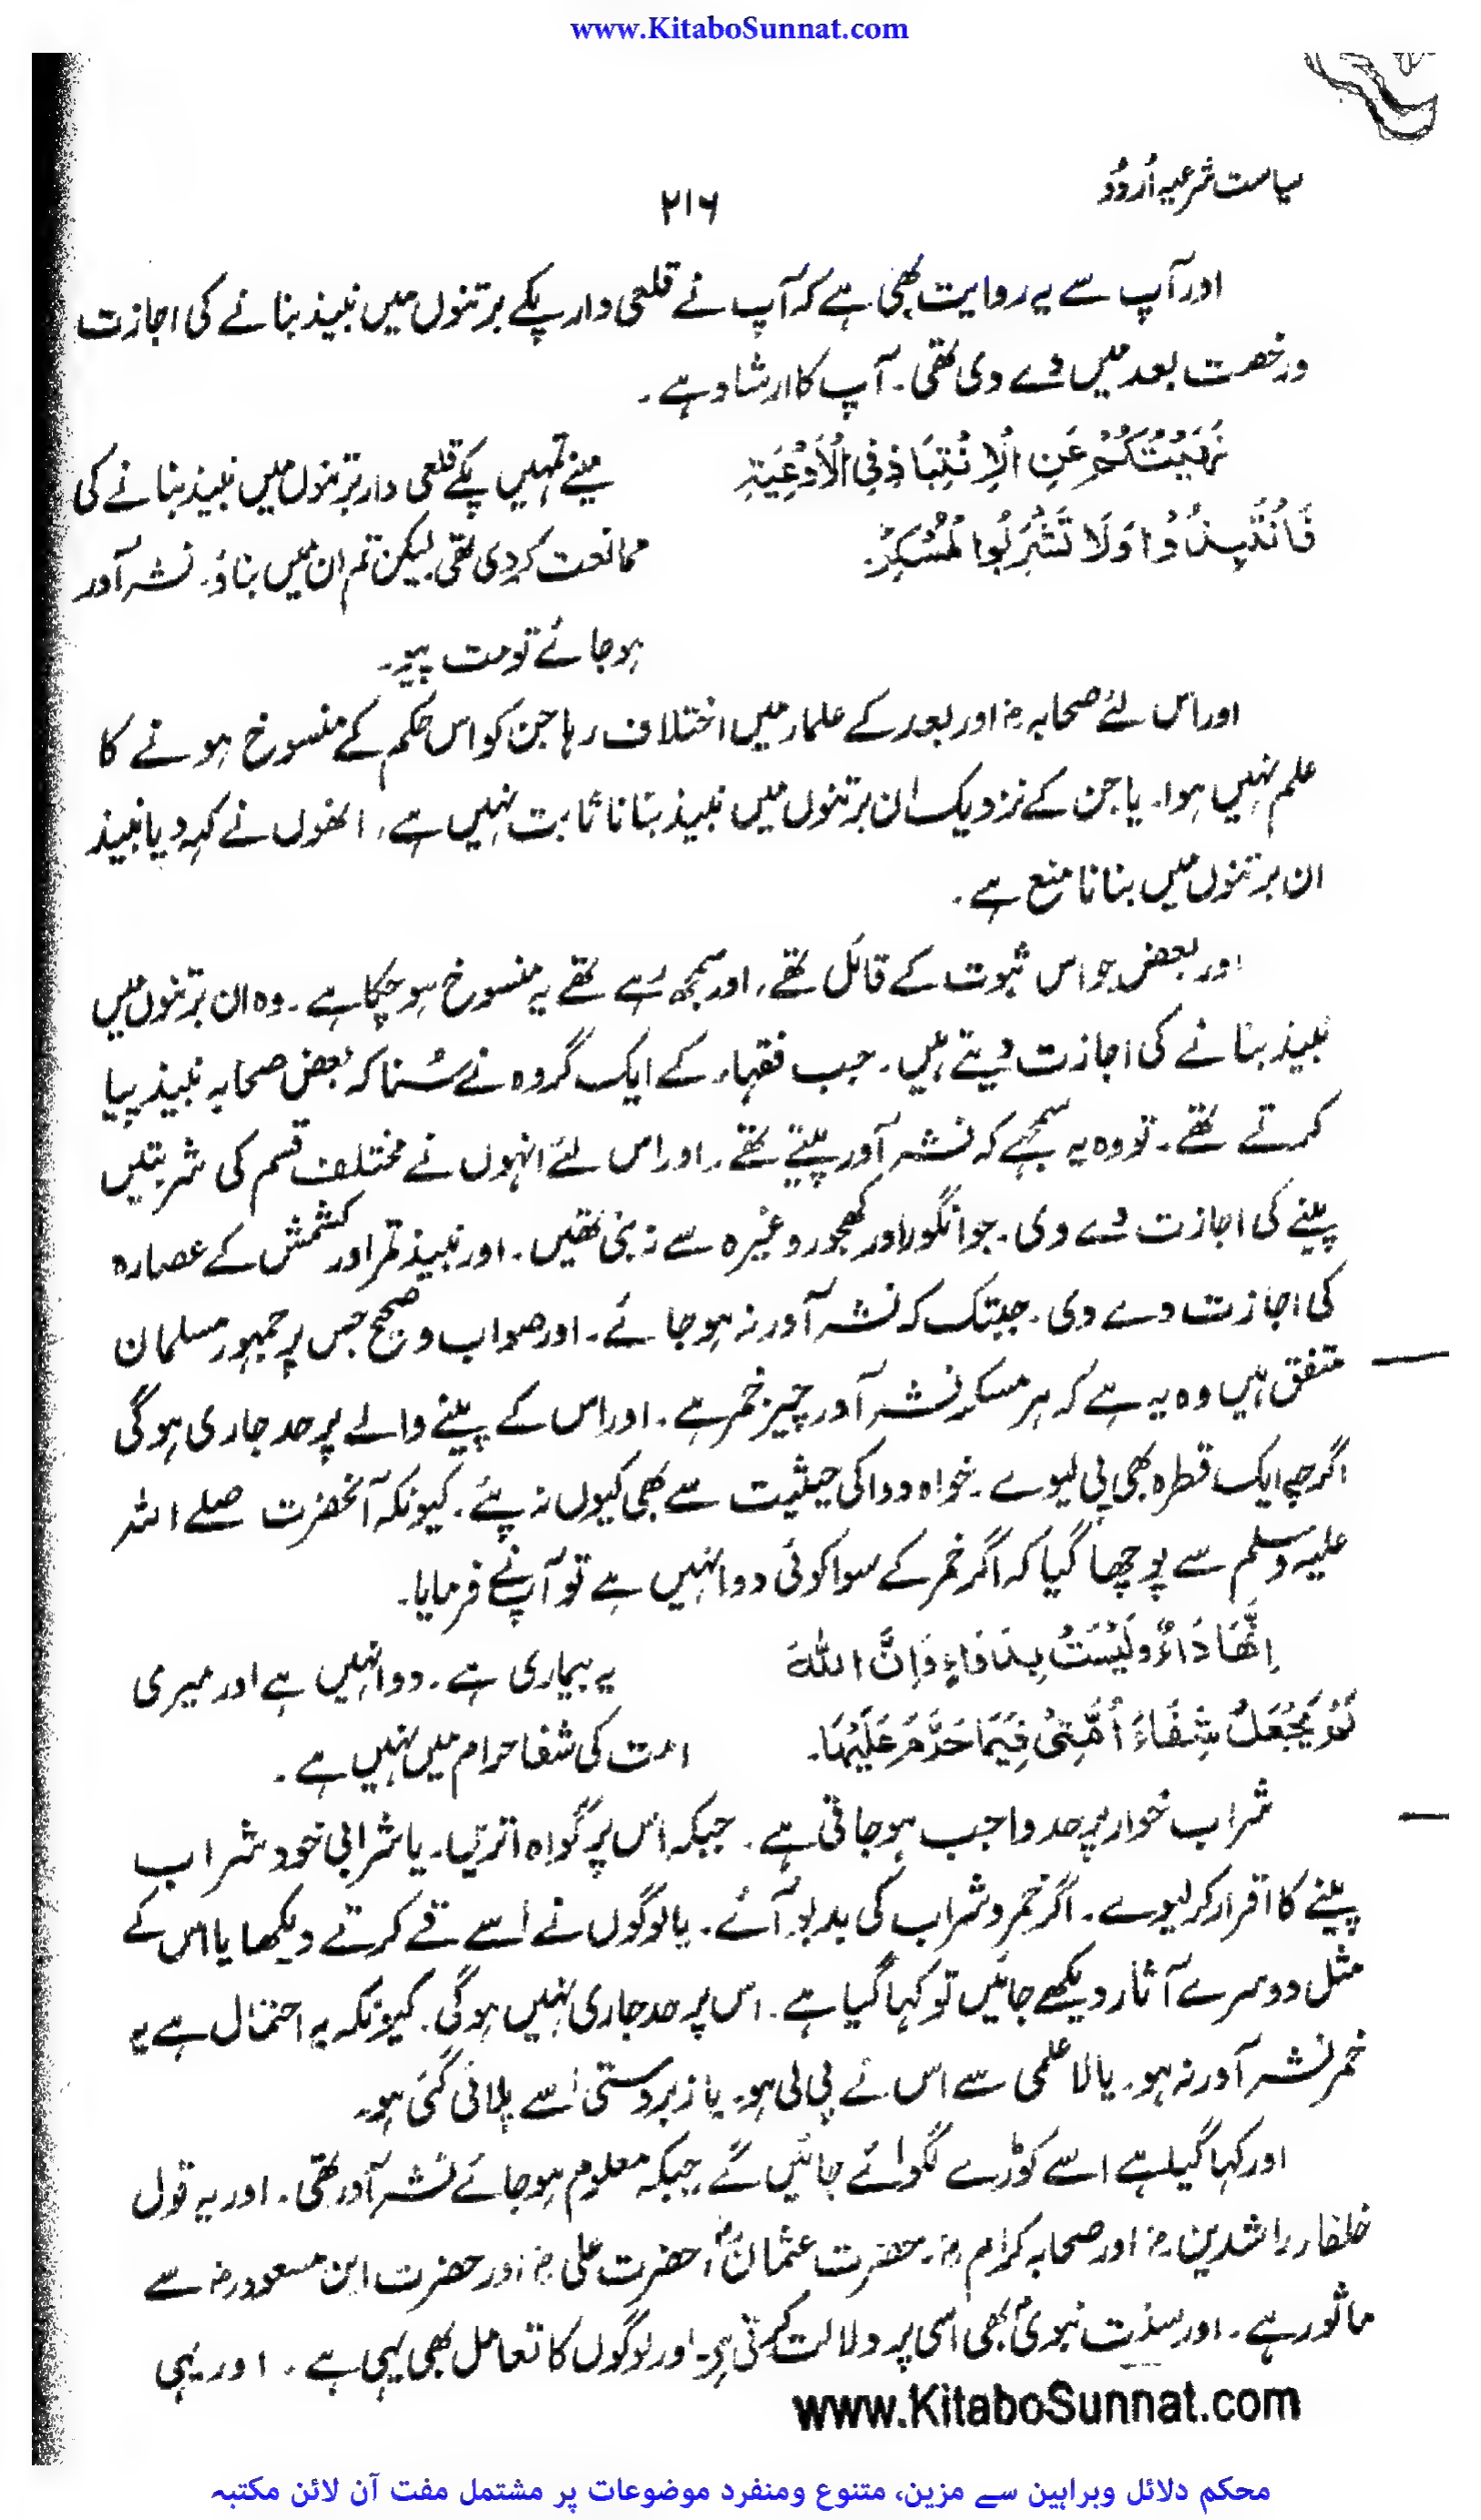 www.KitaboSunnat.com
سیاست شرعیہ اُردُو
۲۱۶
اور آپ سے یہ روایت بھی ہے کہ آپ نے قلعی دار پکے برتنوں میں نبیذ بنانے کی اجازت
ورخصت بعد میں دے دی تھی۔ آپ کا ارشاد ہے۔
نَهَيْتُكُمْ عَنِ الْاِنْتِبَاذِ فِى الْاَوْعِيَةِ
مینے تمہیں پکے قلعی دار برتنوں میں نبیذ بنانے کی
فَانْتَبِذُوْا وَلَا تَشْرَبُوا لْمُسْكِرَ۔
ممانعت کردی تھی لیکن تم ان میں بناؤ۔ نشہ آور
ہو جائے تو مت پیو۔
اور اس لئے صحابہ رض اور بعد کے علماء میں اختلاف رہا جن کو اس حکم کے منسوخ ہونے کا
علم نہیں ہوا۔ یا جن کے نزدیک ان برتنوں میں نبیذ بنانا ثابت نہیں ہے، انھوں نے کہہ دیا نبیذ
ان برتنوں میں بنانا منع ہے۔
اور بعض جو اس ثبوت کے قائل تھے، اور سمجھ رہے تھے یہ منسوخ ہو چکا ہے۔ وہ ان برتنوں میں
نبیذ بنانے کی اجازت دیتے ہیں۔ جب فقہاء کے ایک گروہ نے سُنا کہ بعض صحابہ نبیذ پیا
کرتے تھے۔ تو وہ یہ سمجھے کہ نشہ آور پیتے تھے۔ اور اس لئے انہوں نے مختلف قسم کی شربتیں
پینے کی اجازت دے دی۔ جو انگور اور کھجور وغیرہ سے نہ بنی تھیں۔ اور نبیذ تمر اور کشمش کے عصارہ
کی اجازت دے دی۔ جبتک کہ نشہ آور نہ ہو جائے۔ اور صواب و صحیح جس پر جمہور مسلمان
متفق ہیں وہ یہ ہے کہ ہر مسکر نشہ آور چیز خمر ہے۔ اور اس کے پینے والے پر حد جاری ہوگی
اگرچہ ایک قطرہ بھی پی لیوے۔ خواہ دوا کی حیثیت سے بھی کیوں نہ پئے۔ کیونکہ آنحضرت صلے اللہ
علیہ وسلم سے پوچھا گیا کہ اگر خمر کے سوا کوئی دوا نہیں ہے تو آپنے فرمایا۔
اِنَّهَا دَاءٌ وَلَيْسَتْ بِدَوَاءٍ وَاِنَّ اللّٰهَ
یہ بیماری ہے۔ دوا نہیں ہے اور میری
لَمْ يَجْعَلْ شِفَاءَ اُمَّتِىْ فِيْمَا حَرَّمَ عَلَيْهَا۔
امت کی شفا حرام میں نہیں ہے۔
شراب خوار پر حد واجب ہو جاتی ہے۔ جبکہ اس پر گواہ اتریں۔ یا شرابی خود شراب
پینے کا اقرار کرلیوے۔ اگر خمر و شراب کی بدبو آئے۔ یا لوگوں نے اُسے قے کرتے دیکھا یا اس کے
مثل دوسرے آثار دیکھے جائیں تو کہا گیا ہے۔ اس پر حد جاری نہیں ہوگی۔ کیونکہ یہ احتمال ہے یہ
خمر نشہ آور نہ ہو۔ یا لا علمی سے اس نے پی لی ہو۔ یا زبردستی اُسے پلائی گئی ہو۔
اور کہا گیا ہے اسے کوڑے لگوائے جائیں گے جبکہ معلوم ہو جائے نشہ آور تھی۔ اور یہ قول
خلفاء راشدین رض اور صحابہ کرام رض۔ حضرت عثمان رض، حضرت علی رض اور حضرت ابن مسعود رض سے
ماثور ہے۔ اور سنت نبوی ؐ بھی اسی پر دلالت کرتی ہے۔ اور لوگوں کا تعامل بھی یہی ہے۔ اور یہی
www.KitaboSunnat.com
محکم دلائل وبراہین سے مزین، متنوع ومنفرد موضوعات پر مشتمل مفت آن لائن مکتبہ